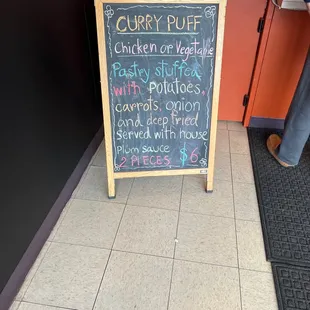 CURRY PUFF
Chicken or Vegetable
Pastry stuffed
with Potatoes,
carrots, onion
and deep fried
served with house
plum sauce
2 PIECES $6